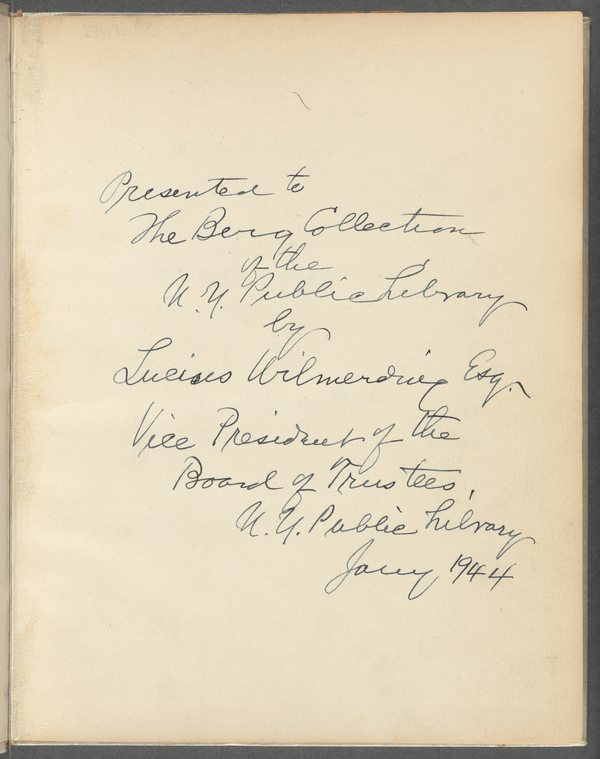 Presented to
The Berg Collection
of the
N.Y. Public Library
by
Lucius Wilmerding Esq.
Vice President of the
Board of Trustees,
N.Y. Public Library
Jany 1944